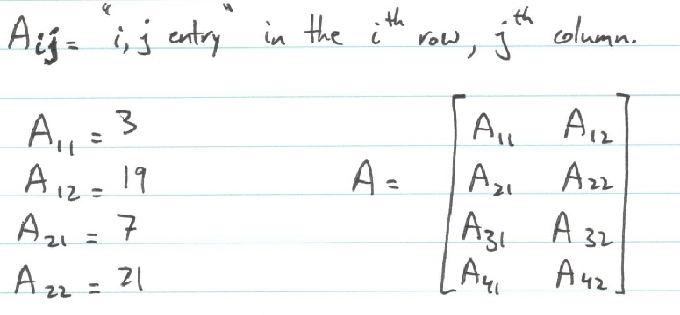 Aij = "i,j entry" in the ith row, jth column.
A11 = 3
A12 = 19
A21 = 7
A22 = 21
A = [ A11 A12
A21 A22
A31 A32
A41 A42 ]